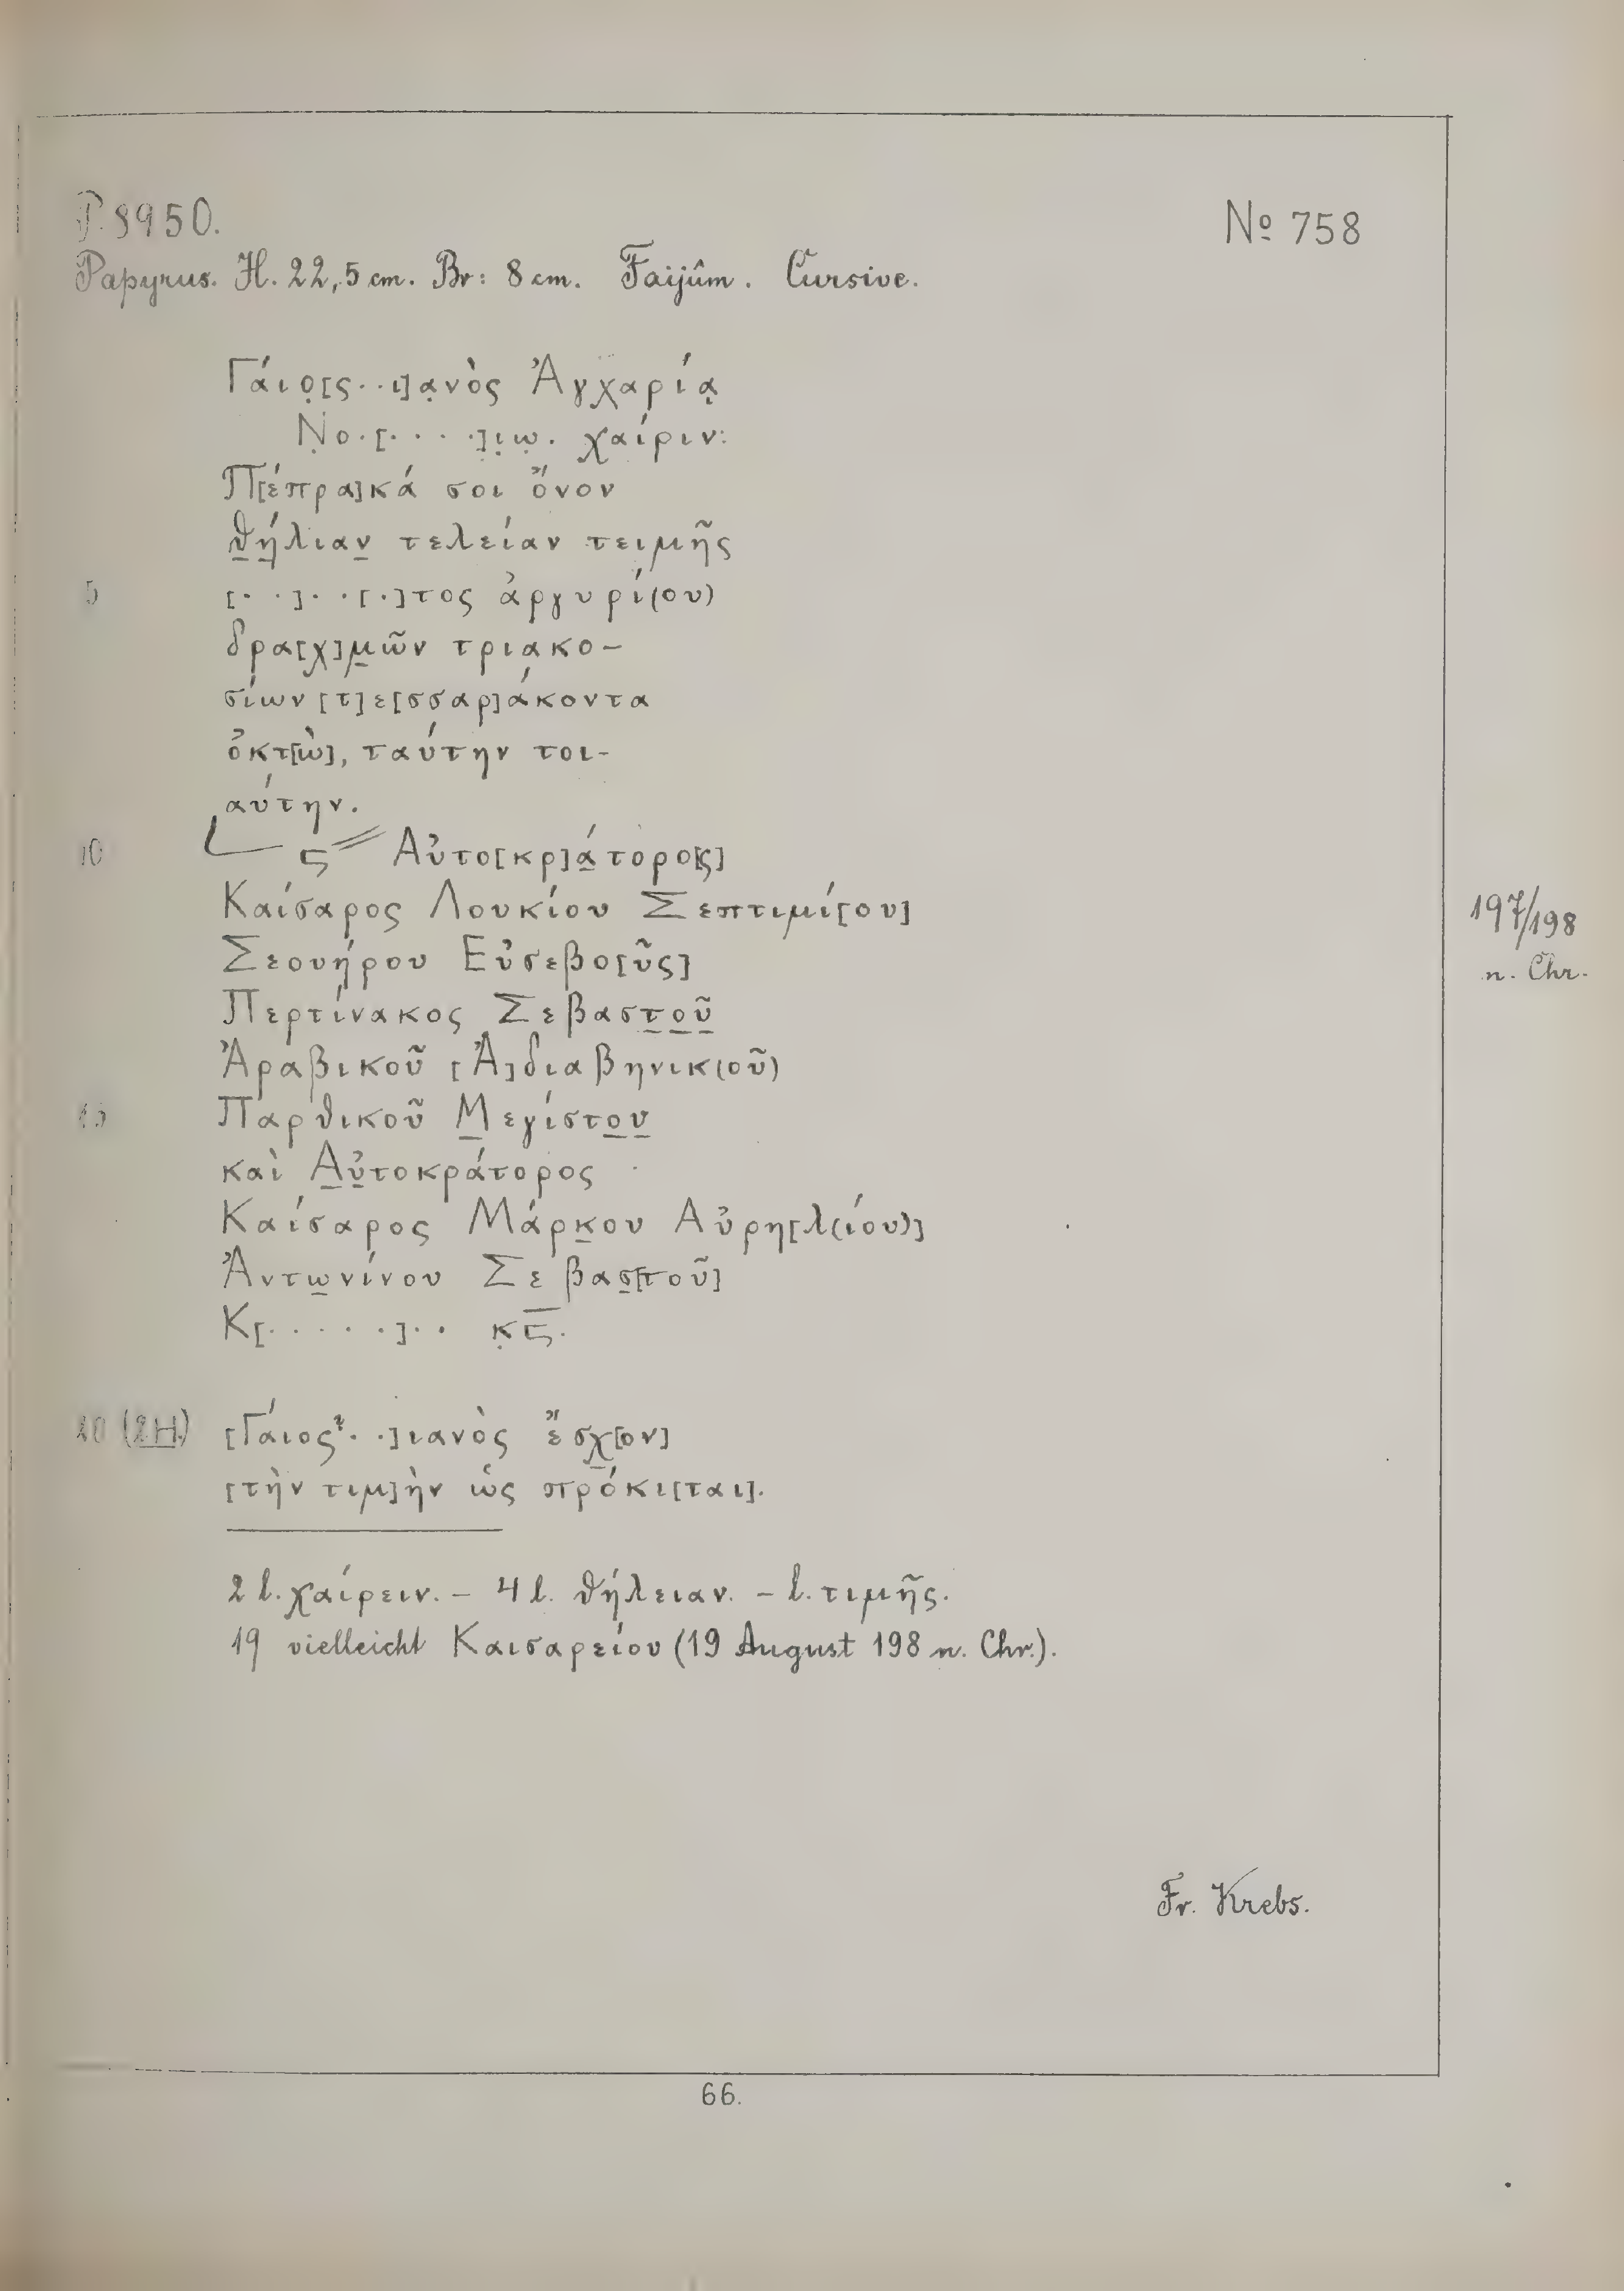 P. 8950. Nº 758
Papyrus. H. 22,5 cm. Br: 8 cm. Faijûm. Cursive.
Γάιο̣[ς··ι]α̣νὸς Ἀγχαρία̣
Ν̣ο·[····]ι̣ω̣. χαίριν:
Π[έπρα]κά σοι ὄνον
θ̲ή̲λιαν̲ τελείαν τειμῆς
5 [··]··[·]τος ἀργυρί(ου)
δρα[χ]μ̲ῶν τριακο-
σίων [τ]ε[σσαρ]άκοντα
ὀκτ[ὼ], ταύτην τοι-
αύτην.
10 L ϛ// Αὐτο[κρ]ά̲τορο[ς]
Καίσαρος Λουκίου Σεπτιμί[ου] 197/198
Σεουήρου Εὐσεβο[ῦς] n. Chr.
Περτίνακος Σεβαστ̲ο̲ῦ̲
Ἀραβικοῦ [Ἀ]διαβηνικ(οῦ)
15 Παρθικοῦ Μ̲εγίστο̲υ̲
καὶ Α̲ὐ̲τοκράτορος
Καίσαρος Μάρκ̲ου Αὐρη[λ(ίου)]
Ἀντω̲νίνου Σεβασ̲[τοῦ]
Κ[·····]·· κ̣ϛ̅.
20 (2H.) [Γάιος?··]ιανὸς ἔσχ̲[ον]
[τὴν τιμ]ὴν ὡς πρόκι[ται].
2 l. χαίρειν. – 4 l. θήλειαν. – l. τιμῆς.
19 vielleicht Καισαρείου (19 August 198 n. Chr.).
Fr. Krebs.
66.